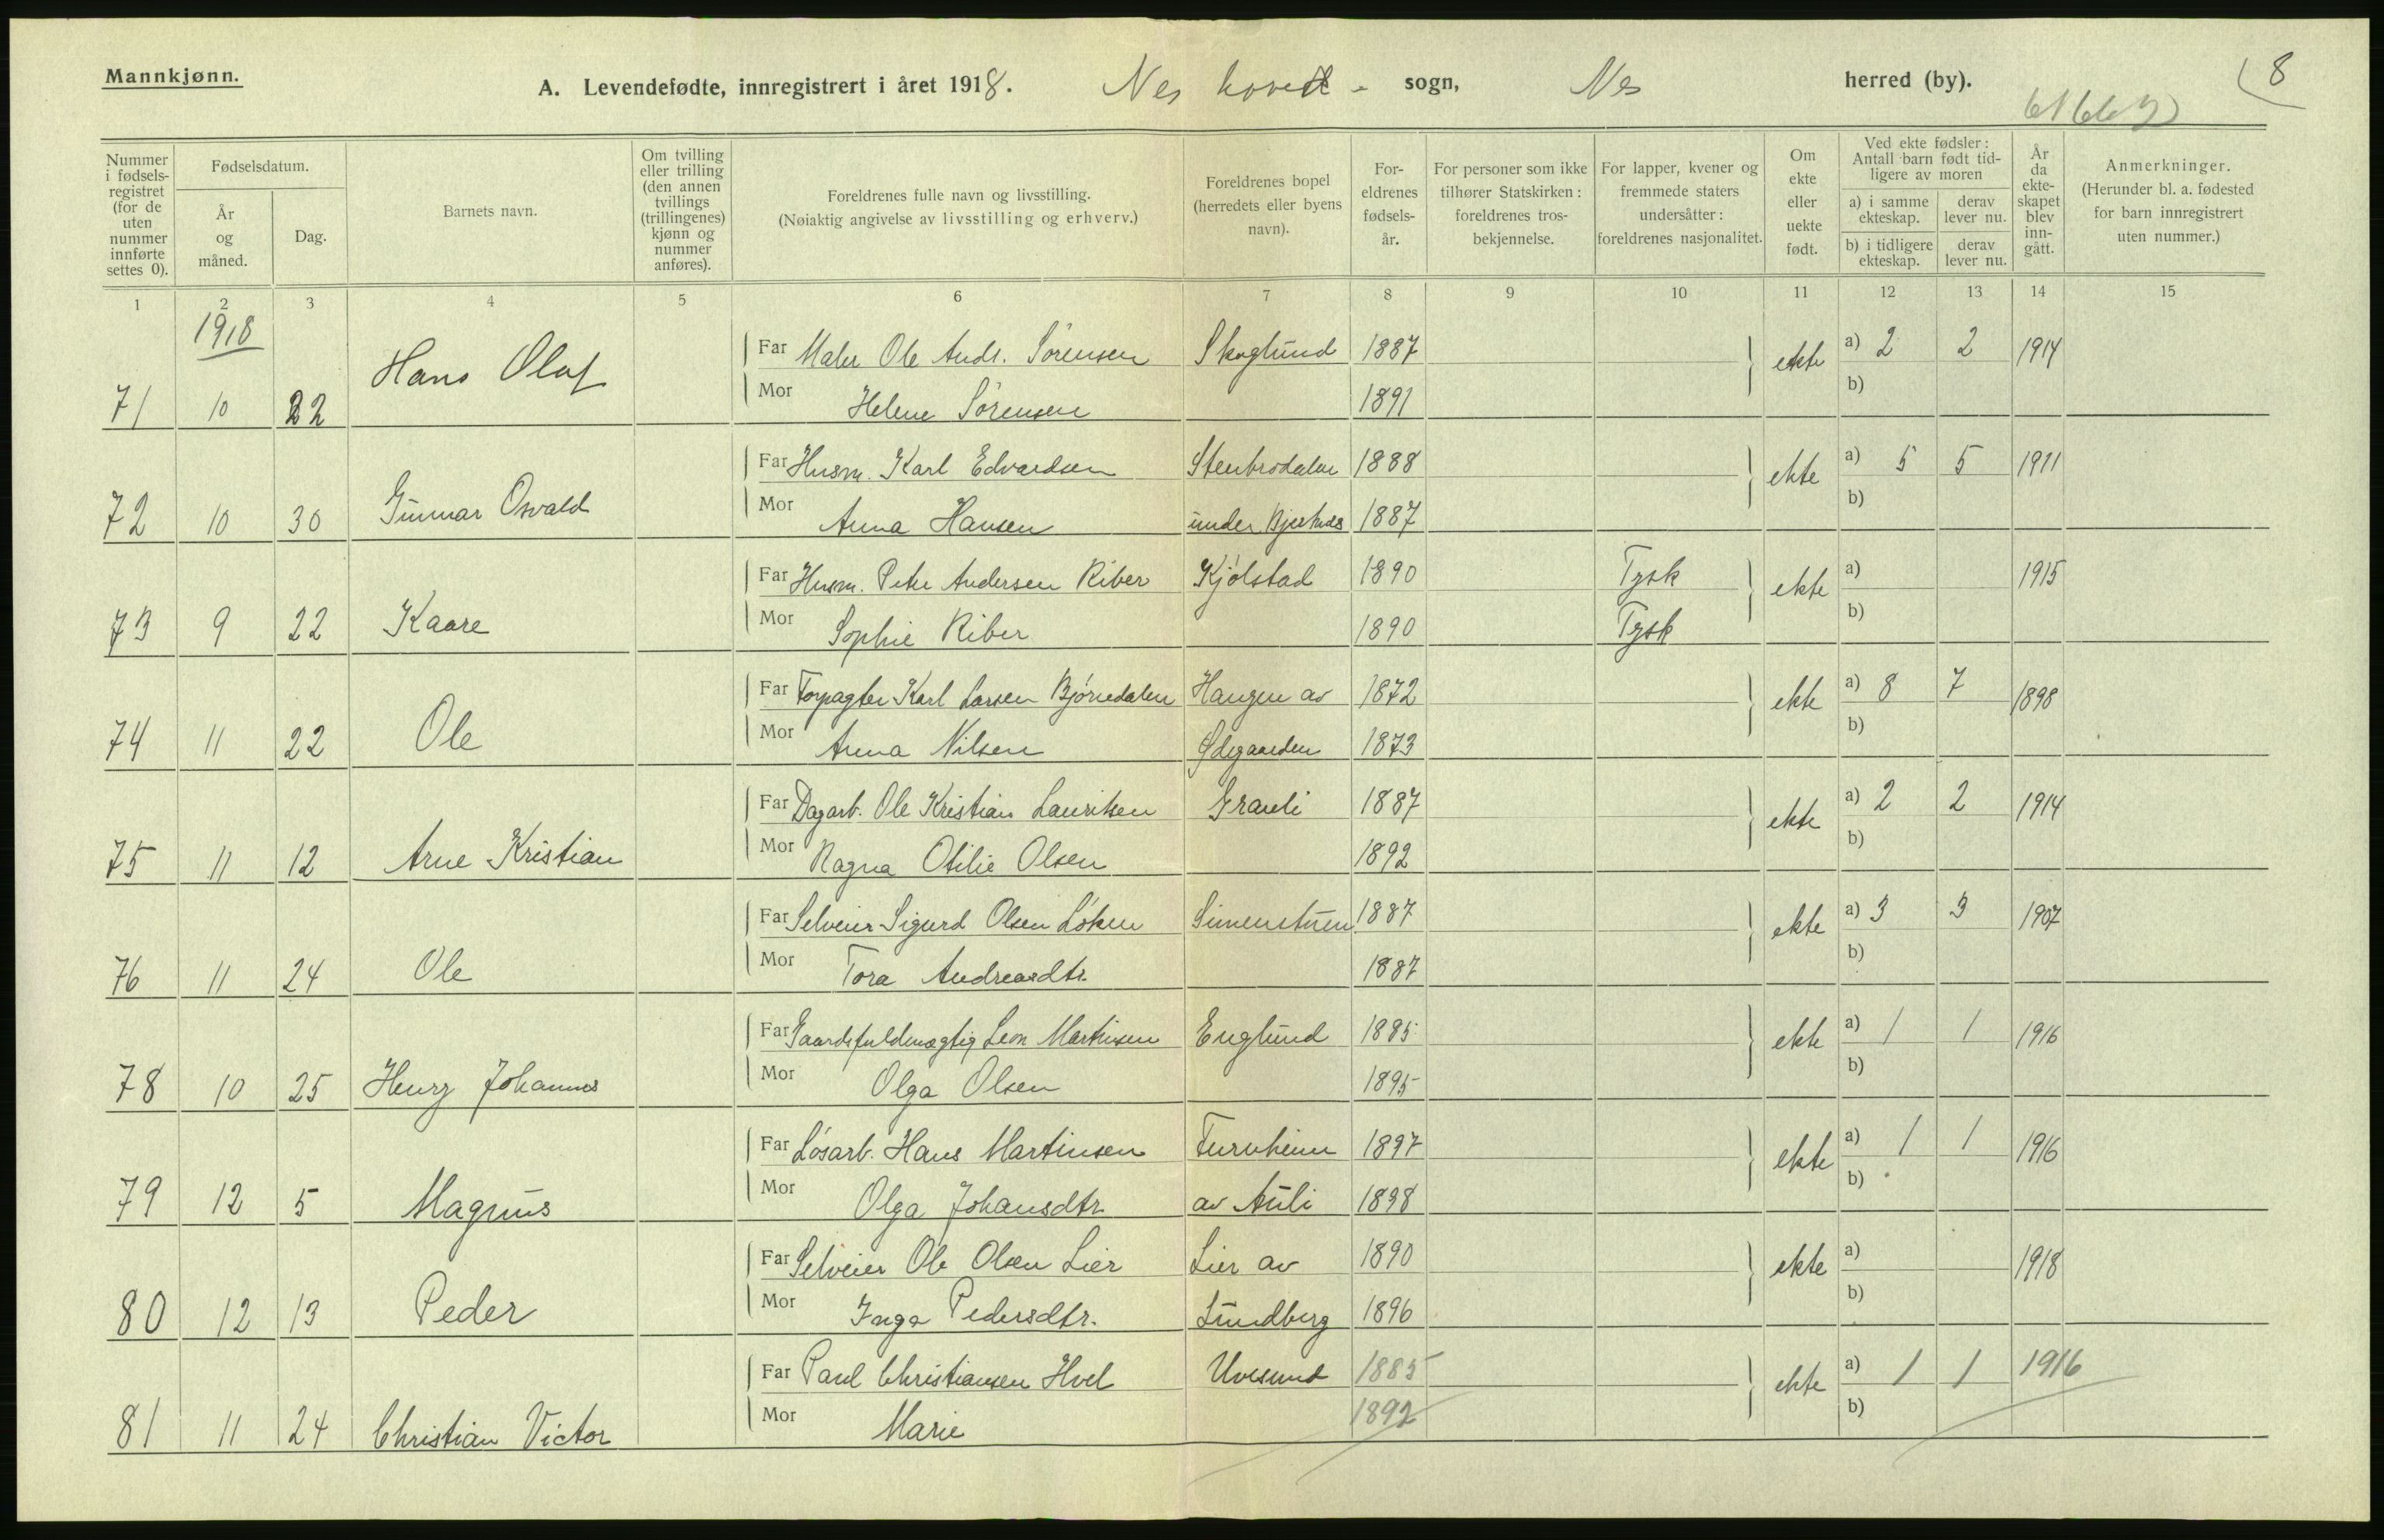 Mannkjønn.
A. Levendefødte, innregistrert i året 1918. Nes hoved- sogn, Nes herred (by).
8
Nummer i fødsels-registret (for de uten nummer innførte settes 0).
Fødselsdatum.
År og måned.
Dag.
Barnets navn.
Om tvilling eller trilling (den annen tvillings (trillingenes) kjønn og nummer anføres).
Foreldrenes fulle navn og livsstilling.
(Nøiaktig angivelse av livsstilling og erhverv.)
Foreldrenes bopel (herredets eller byens navn).
For-eldrenes fødsels-år.
For personer som ikke tilhører Statskirken: foreldrenes tros-bekjennelse.
For lapper, kvener og fremmede staters undersåtter: foreldrenes nasjonalitet.
Om ekte eller uekte født.
Ved ekte fødsler: Antall barn født tid-ligere av moren
a) i samme ekteskap.
derav lever nu.
b) i tidligere ekteskap.
derav lever nu.
År da ekte-skapet blev inn-gått.
Anmerkninger.
(Herunder bl. a. fødested for barn innregistrert uten nummer.)
1 2 3 4 5 6 7 8 9 10 11 12 13 14 15
1918
Far Maler Ole Andr. Sörensen Skoglund 1887 ekte a) 2 2 1914
71 10 22 Hans Olaf Mor Helene Sörensen 1891 b)
Far Husm. Karl Edvardsen Stenbrodalen 1888 ekte a) 5 5 1911
72 10 30 Gunnar Osvald Mor Anna Hansen under 1887 b)
Far Husm. Peter Andersen Riber Kjölstad 1890 Tysk ekte a) 1915
73 9 22 Kaare Mor Sophie Riber 1890 Tysk b)
Far Forpagter Karl Larsen Björnedalen Haugen av 1872 ekte a) 8 7 1898
74 11 22 Ole Mor Anna Nilsen Ødegaarden 1873 b)
Far Dagarb. Ole Kristian Lauritsen Grauli 1887 ekte a) 2 2 1914
75 11 12 Arne Kristian Mor Ragna Otilie Olsen 1892 b)
Far Selveier Sigurd Olsen Löken Simenstuen 1887 ekte a) 3 3 1907
76 11 24 Ole Mor Tora Andreasdtr. 1887 b)
Far Gaardsfuldmægtig Leon Martinsen Englund 1885 ekte a) 1 1 1916
78 10 25 Henry Johannes Mor Olga Olsen 1895 b)
Far Lösarb. Hans Martinsen Furuheim 1897 ekte a) 1 1 1916
79 12 5 Magnus Mor Olga Johansdtr. av Auli 1898 b)
Far Selveier Ole Olsen Lier Lier av 1890 ekte a) 1918
80 12 13 Peder Mor Inga Pedersdtr. Lundberg 1896 b)
Far Paul Christiansen Hvel Uvesund 1885 ekte a) 1 1 1916
81 11 24 Christian Victor Mor Marie 1892 b)